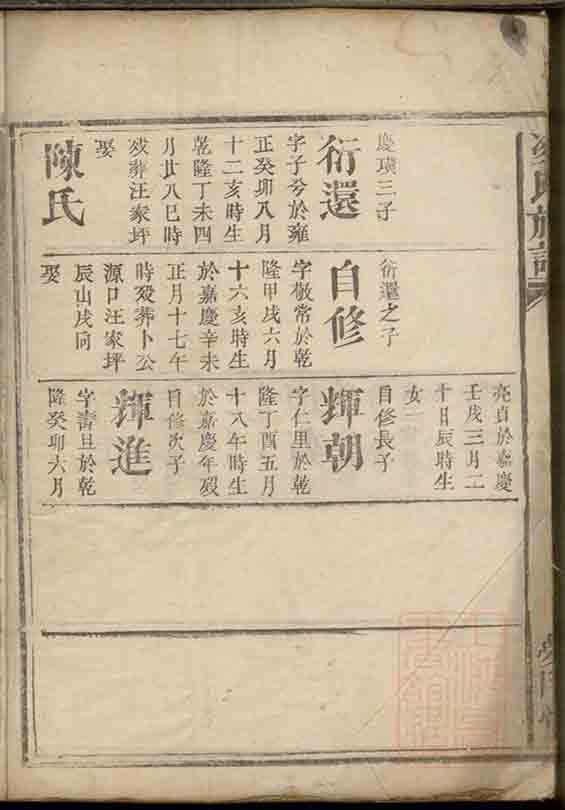 慶璜三子
衍還
字子兮於雍
正癸卯八月
十二亥時生
乾隆丁未四
月廿八巳時
歿葬汪家坪
娶
陳氏
衍還之子
自修
字敬常於乾
隆甲戌六月
十六亥時生
於嘉慶辛未
正月十七午
時歿葬卜公
源口汪家坪
辰山戌向
娶
亮貞於嘉慶
壬戌三月二
十日辰時生
女一
自修長子
輝朝
字仁里於乾
隆丁酉五月
十八午時生
於嘉慶年歿
自修次子
輝進
字壽旦於乾
隆癸卯六月
氏族譜